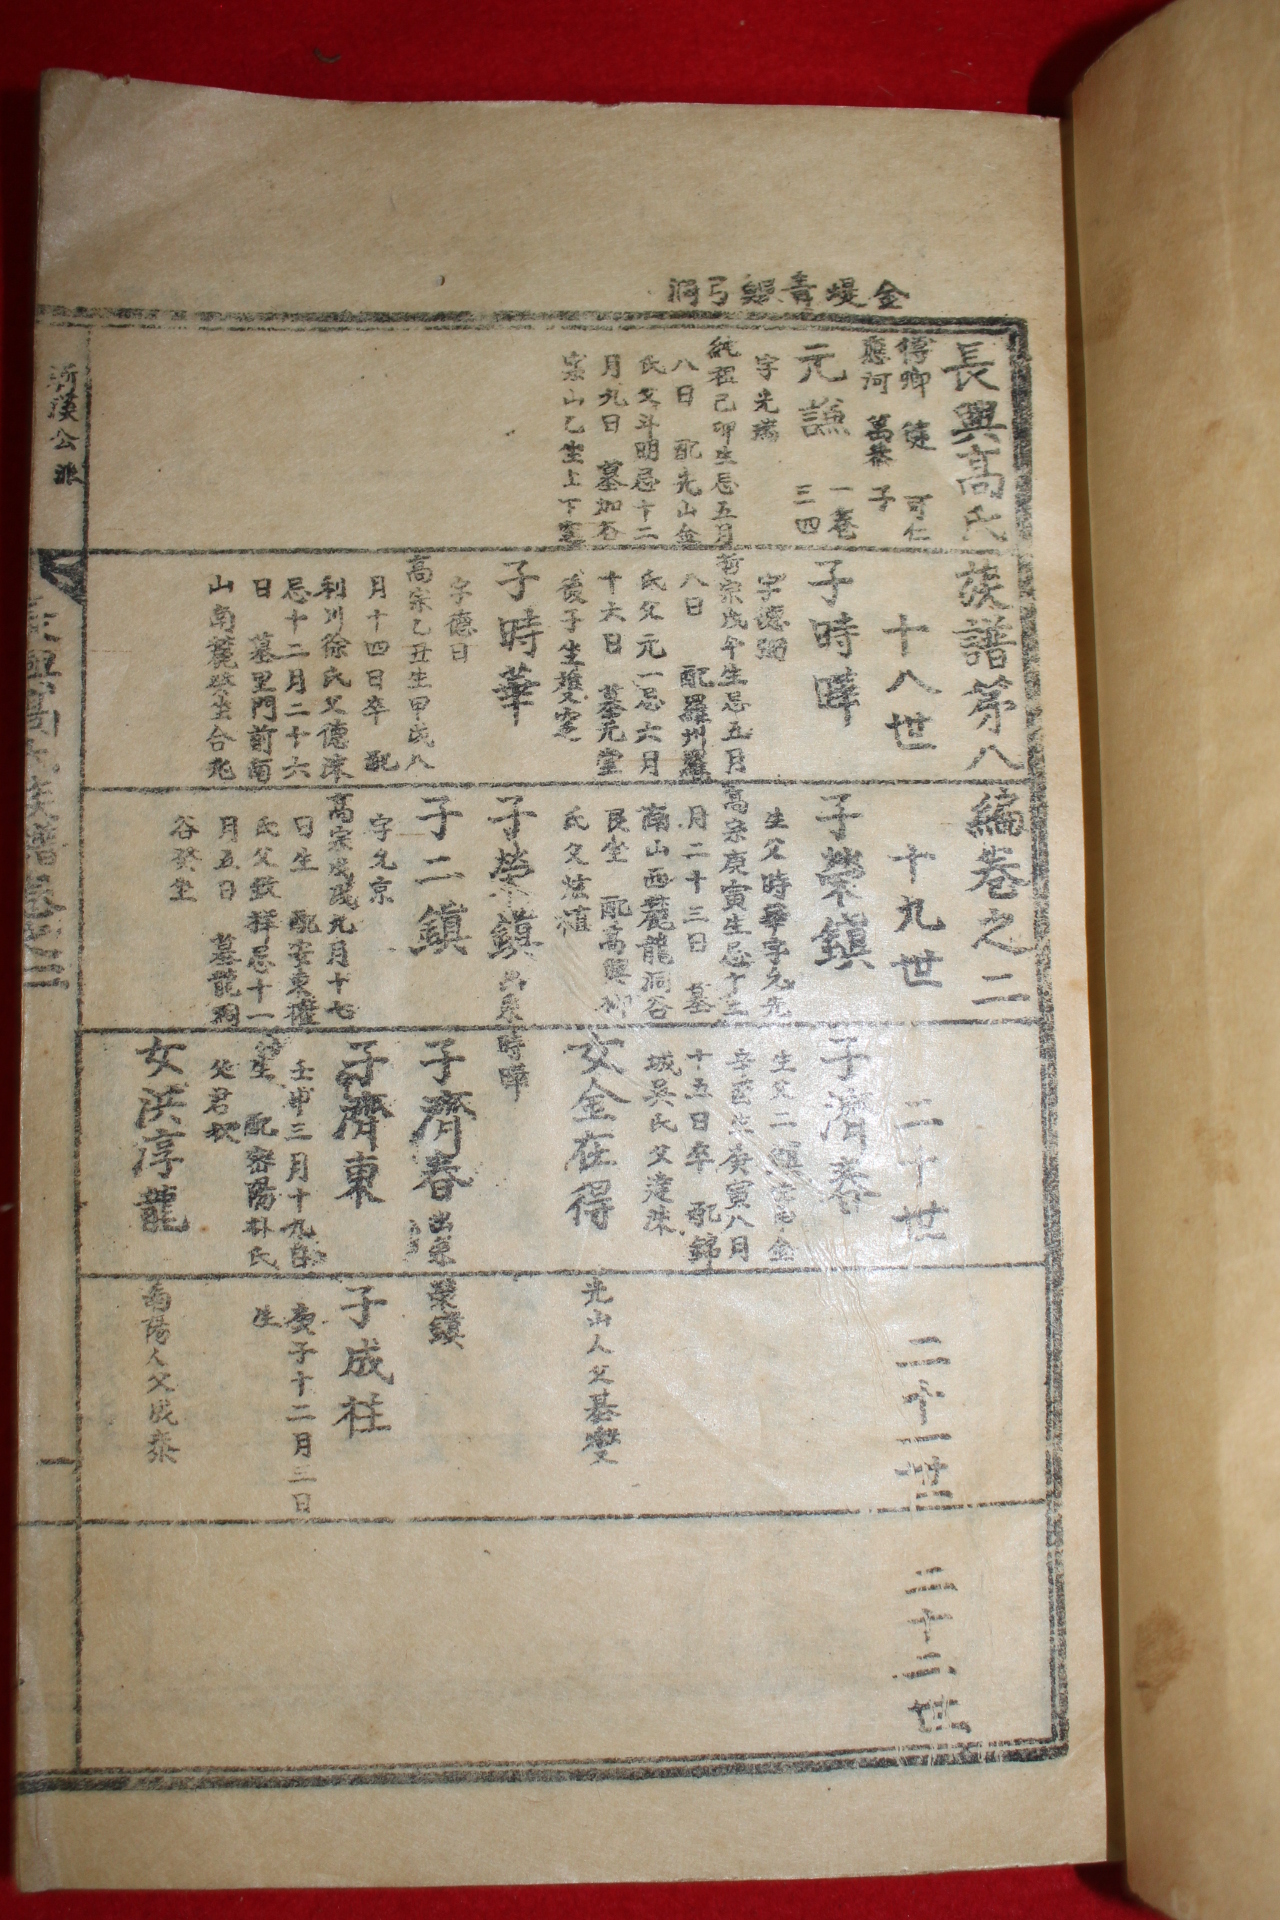 金堤靑蝦弓洞
長興高氏族譜第八編卷之二
十八世
十九世
二十世
二十一世
二十二世
應河 萬恭 子
元謙 一卷三四
字光瑞
純祖己卯生忌五月
八日 配光山金
氏父斗明忌十二
月九日 墓加谷
案山乙坐上下窆
子時曄
字德弼
哲宗戊午生忌五月
八日 配羅州羅
氏父元一忌六月
十六日 墓元堂
後子坐雙窆
子時華
字德日
高宗乙丑生甲辰八
月十四日卒 配
利川徐氏父德洙
忌十二月二十六
日 墓里門前南
山南麓癸坐合兆
子榮鎭
生父時華字允先
高宗庚寅生忌十二
月二十三日 墓
南山西麓龍洞谷
艮坐 配高興柳
氏父浤植
子榮鎭 出系時曄
子二鎭
字允京
高宗戊戌九月十七
日生 配安東權
氏父致祥忌十一
月五日 墓龍洞
谷癸坐
子濟春
生父二鎭
辛酉生庚寅八月
十五日卒 配錦
城吳氏父達洙
女金在得
光山人父基燮
子濟春 出系榮鎭
子濟東
壬申三月十九日
生 配密陽朴氏
父君枚
子成柱
庚子十二月三日
生
女洪淳龍
南陽人父成泰
長興高氏族譜卷之二
一